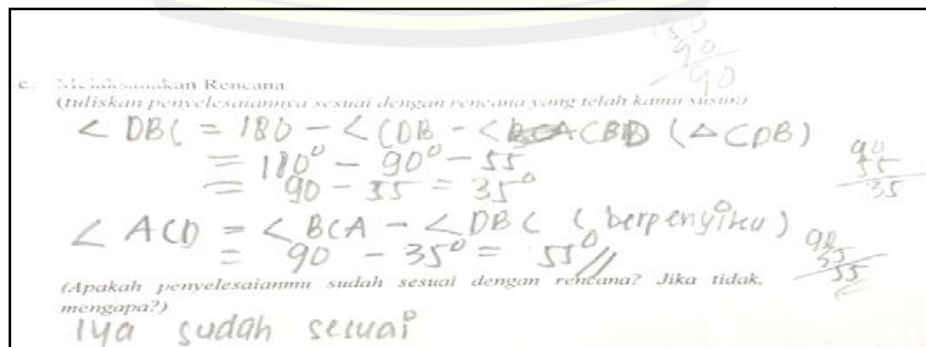 180
90
90
c. Melaksanakan Rencana
(tuliskan penyelesaiannya sesuai dengan rencana yang telah kamu susun)
∠ DBC = 180 - ∠ CDB - ∠ CBD (△ CDB)
= 180° - 90° - 55
= 90 - 55 = 35°
90
55
35
∠ ACD = ∠ BCA - ∠ DBC (berpenyiku)
= 90 - 35° = 55°//
90
35
55
(Apakah penyelesaianmu sudah sesuai dengan rencana? Jika tidak,
mengapa?)
Iya sudah sesuai